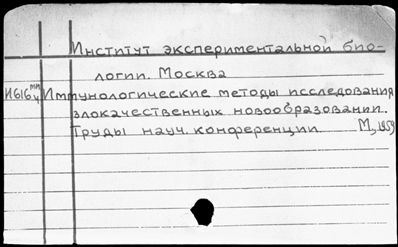 Институт экспериментальной био-
логии. Москва
И616 Иммунологические методы исследования
злокачественных новообразовании.
Труды науч. конференции М, 1959